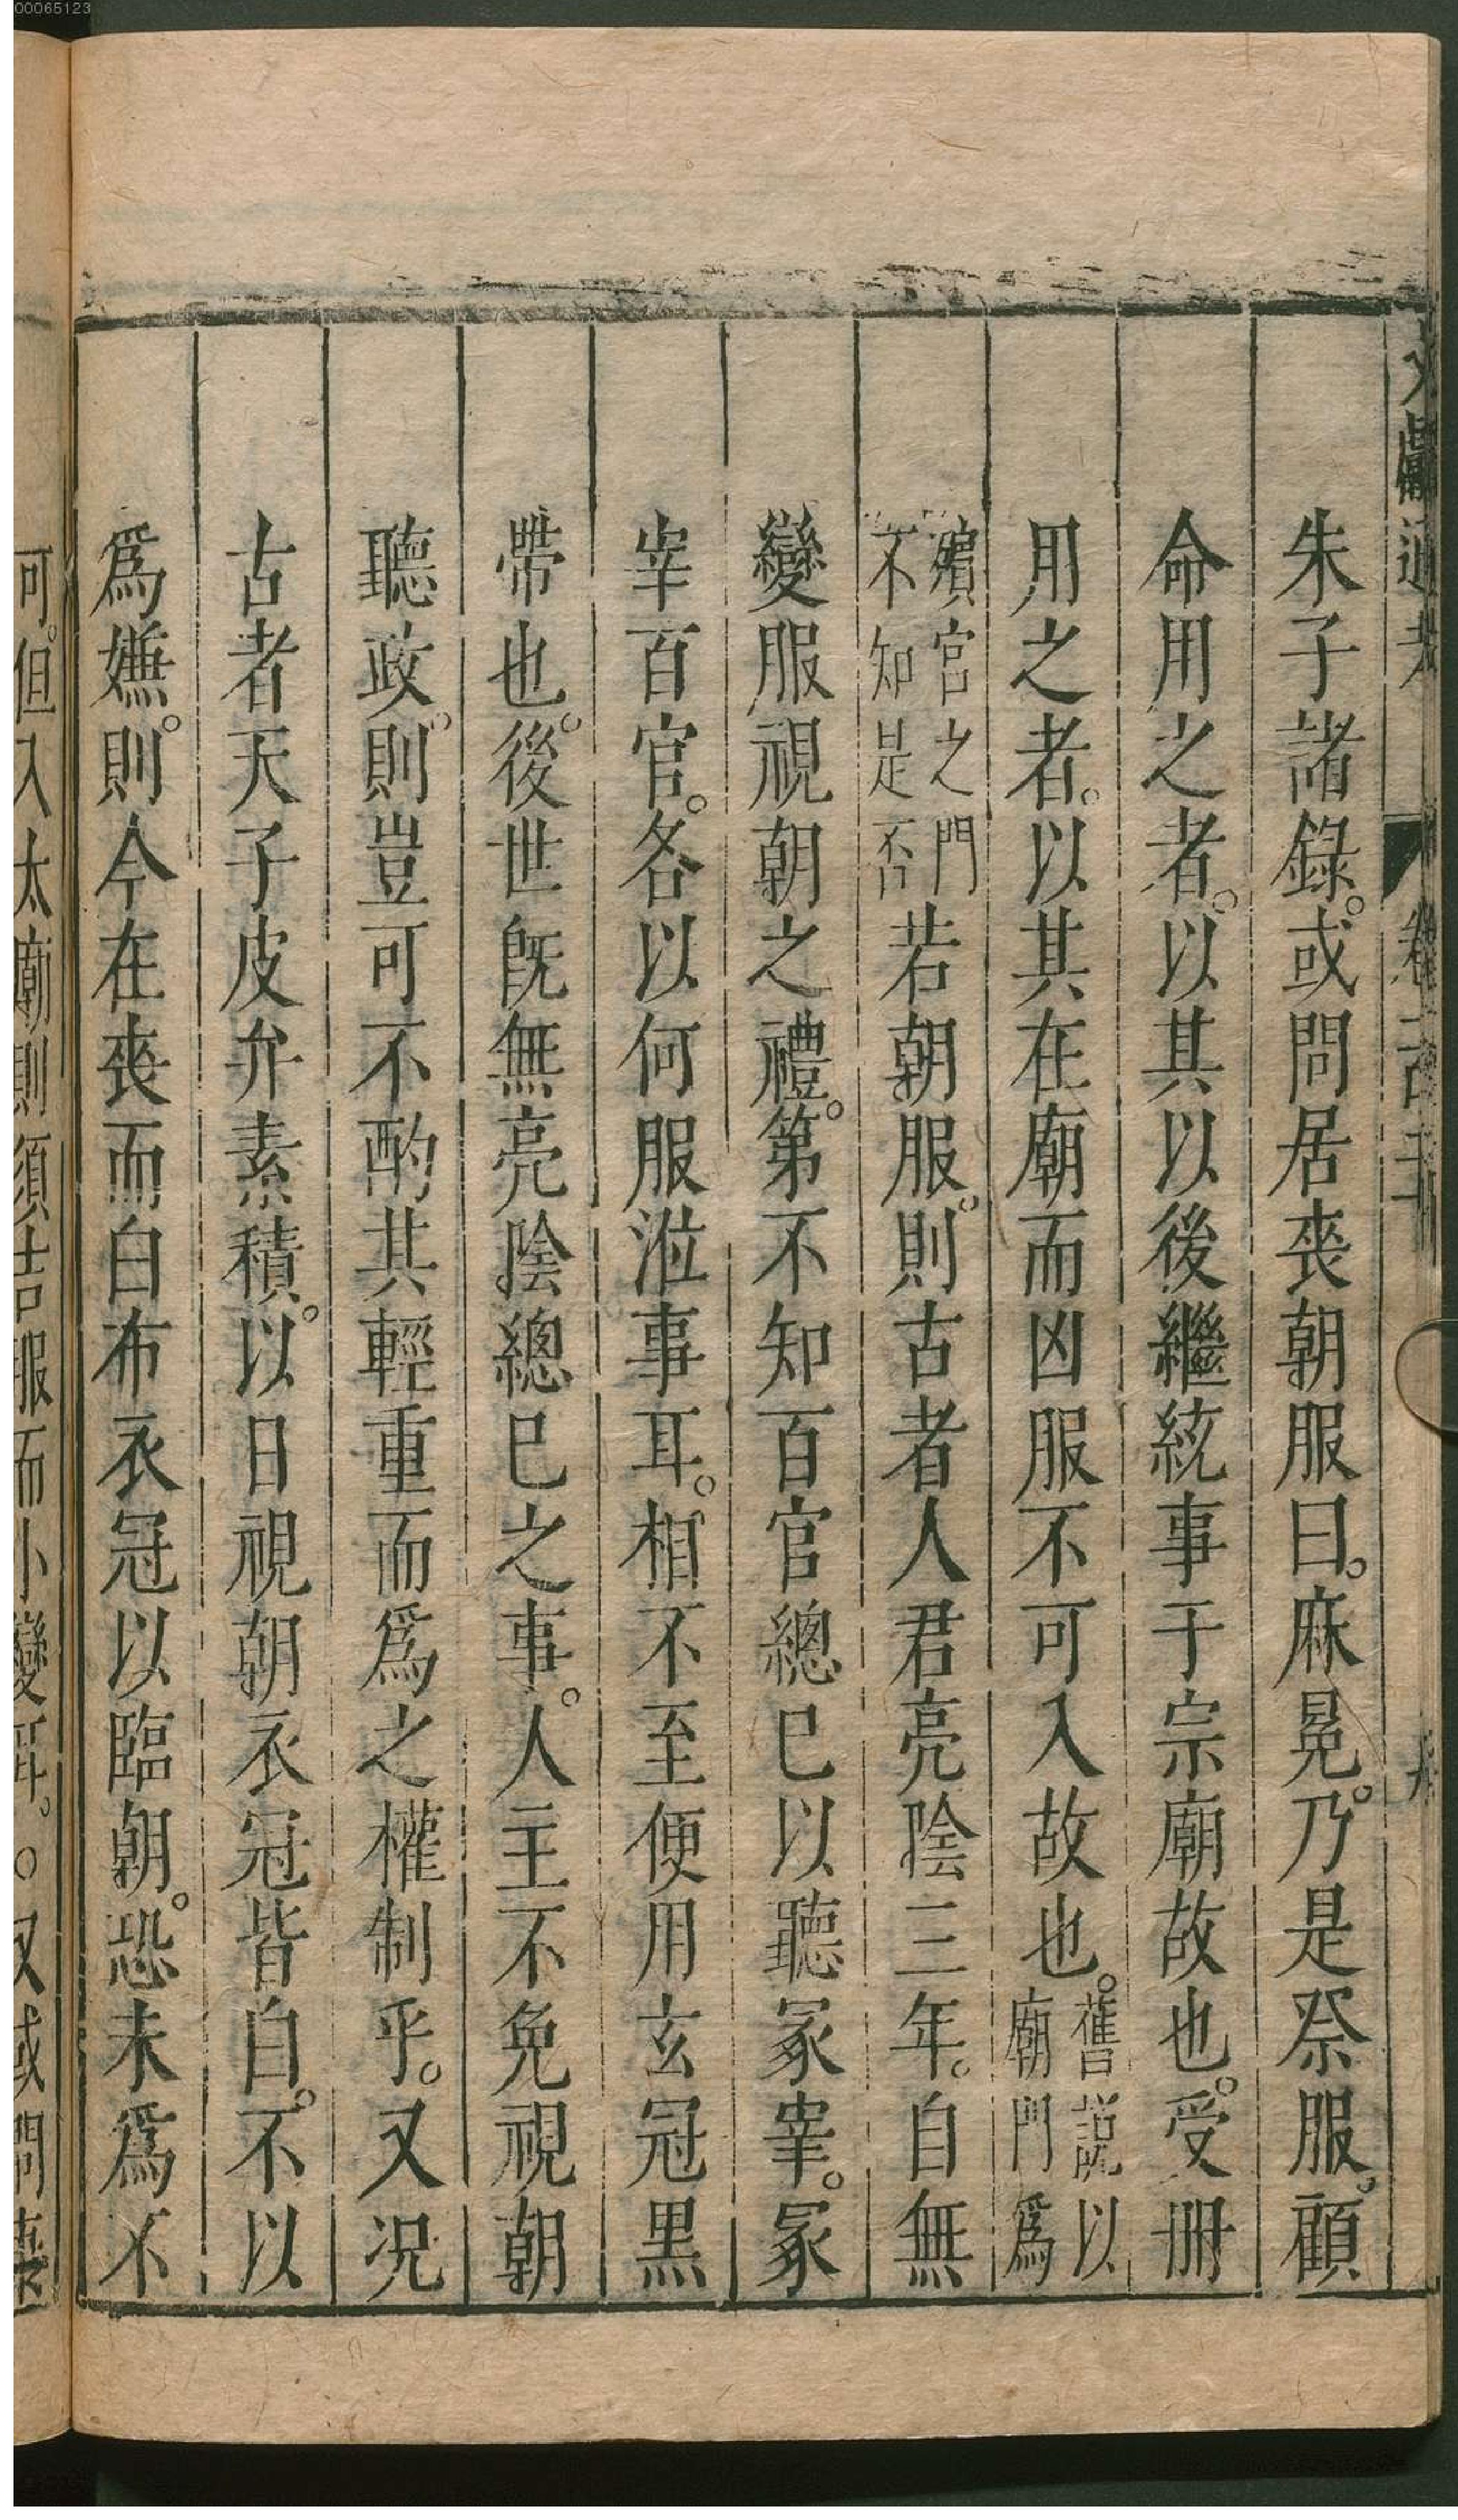 文獻通考
朱子諸錄。或問居丧朝服曰。麻冕。乃是祭服。顧
命用之者。以其以後繼統事于宗廟故也。受冊
用之者。以其在廟而凶服不可入故也。舊説以廟門爲
殯宮之門不知是否若朝服。則古者人君亮陰三年。自無
變服視朝之禮。第不知百官總已以聽冢宰。冢
宰百官。各以何服涖事耳。相不至便用玄冠黑
帶也。後世旣無亮陰總已之事。人主不免視朝
聽政。則豈可不酌其輕重而爲之權制乎。又况
古者天子皮弁素積。以日視朝衣冠皆白。不以
爲嫌。則今在丧而白布衣冠以臨朝。恐未爲不
可。但入太廟則須吉服而小變耳。○又或問
00065123